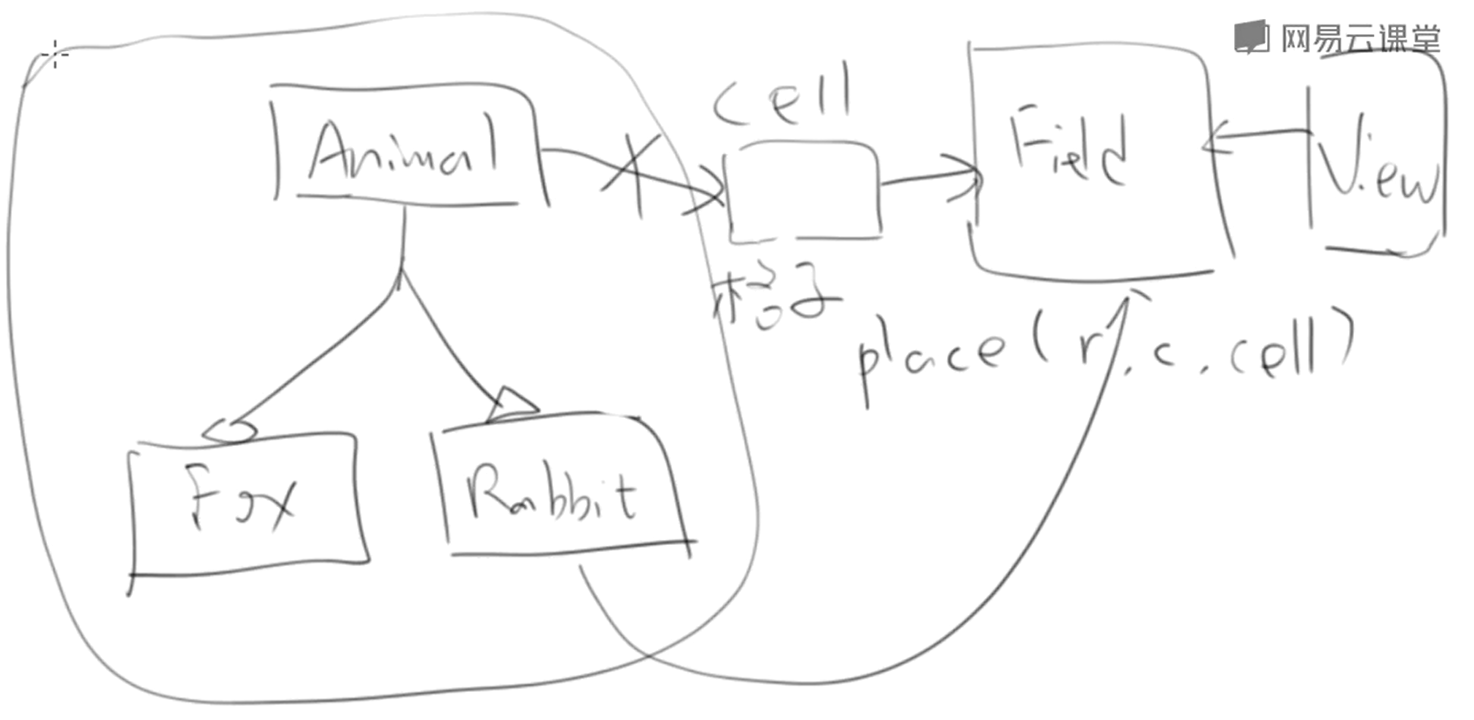 网易云课堂
cell
Animal
Field
View
格子
place(r,c,cell)
Fox
Rabbit